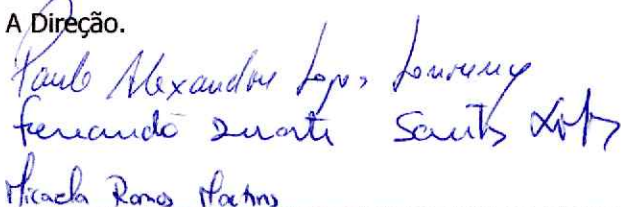 A Direção.
Paulo Alexandre Lopes Lourenço
Fernando Duarte Santos Lopes
Micaela Ramos Martins